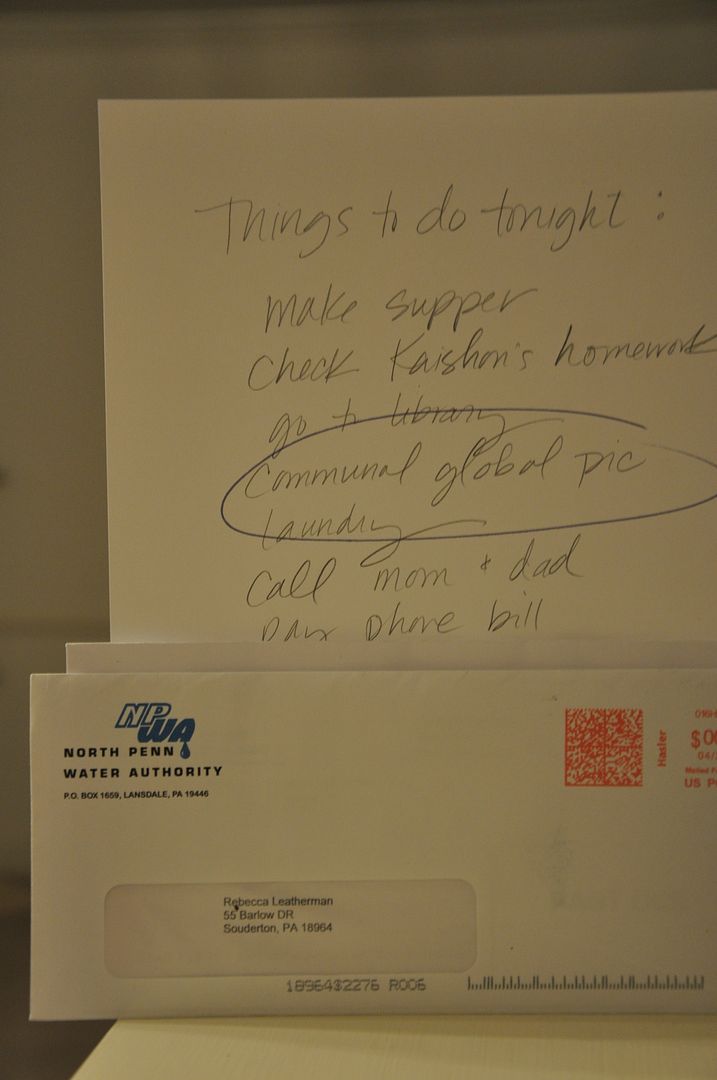 Things to do tonight :
make supper
Check Kaishon's homework
go to library
Communal global pic
laundry
Call mom & dad
pay phone bill
NPWA
NORTH PENN
WATER AUTHORITY
P.O. BOX 1659, LANSDALE, PA 19446
Hasler
$00
04/
US P
Rebecca Leatherman
55 Barlow DR
Souderton, PA 18964
18964$2276 R006